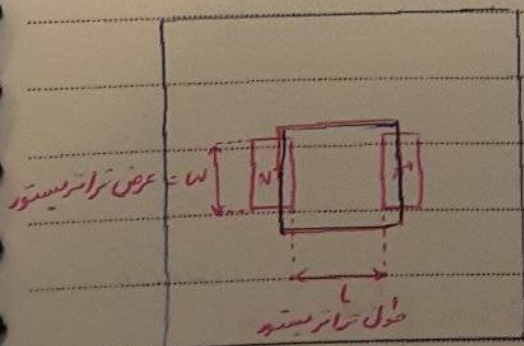 عرض ترانزیستور = W
N
L
طول ترانزیستور